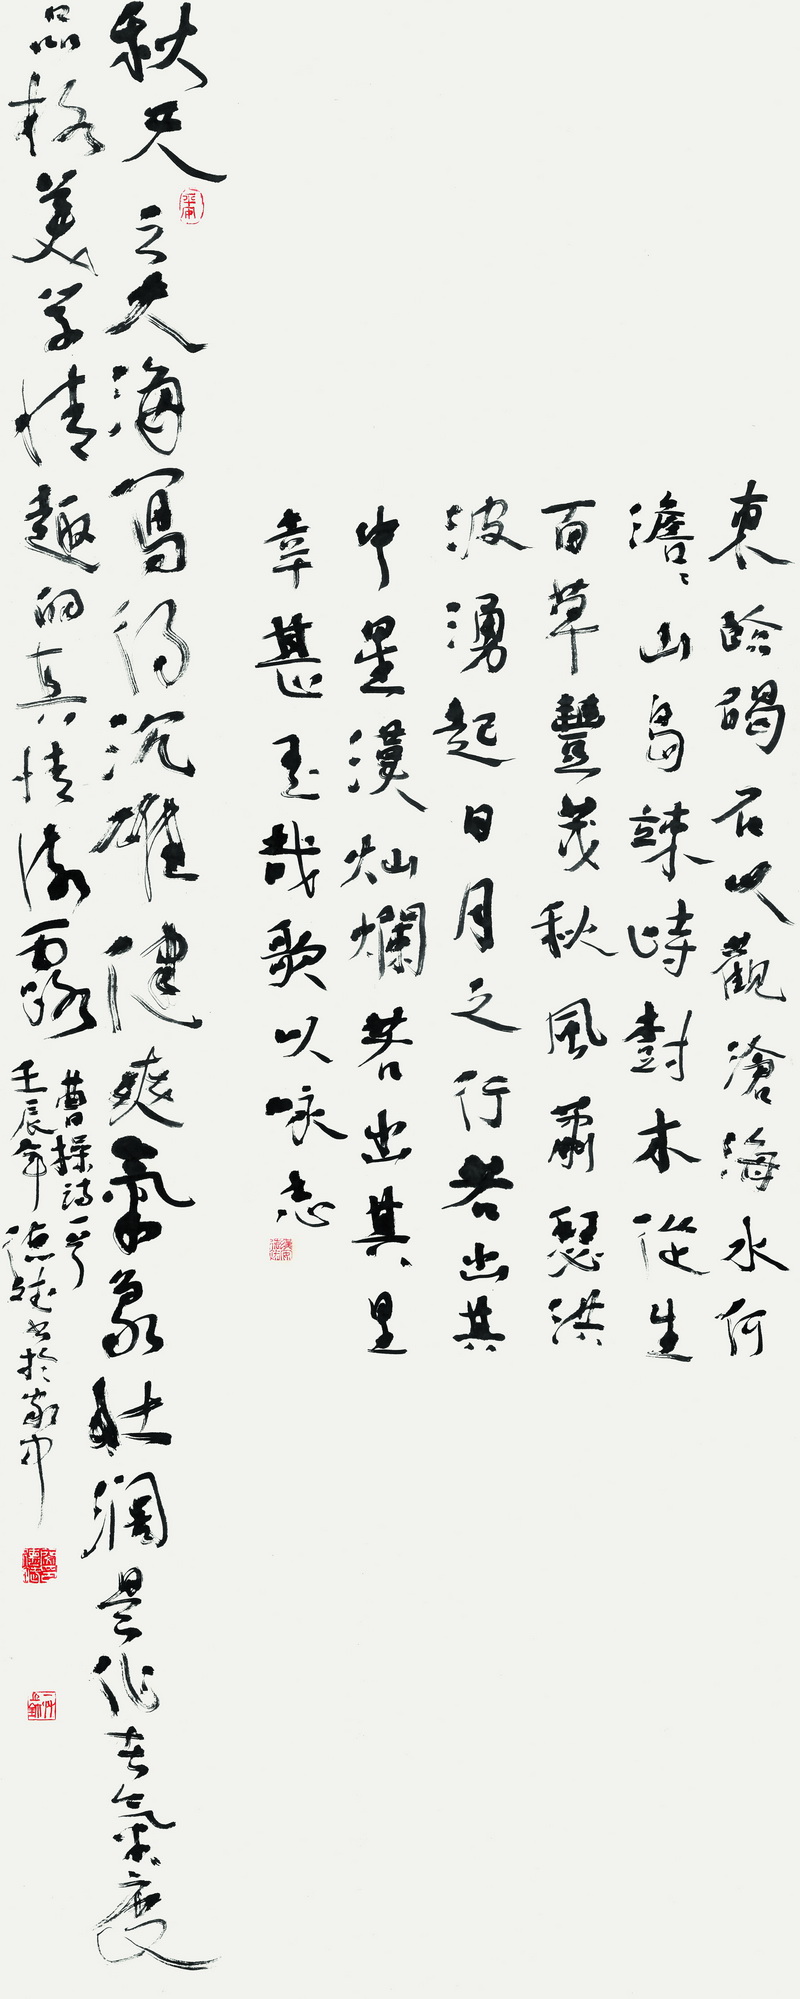 東臨碣石以觀滄海水何
澹澹山島竦峙樹木從生
百草豐茂秋風蕭瑟洪
波湧起日月之行若出其
中星漢燦爛若出其里
幸甚至哉歌以咏志
秋天之大海寫得沉雄健爽氣象壯闊是作者氣度
品格美学情趣的真情流露
曹操詩一首
壬辰年德斌書於家中